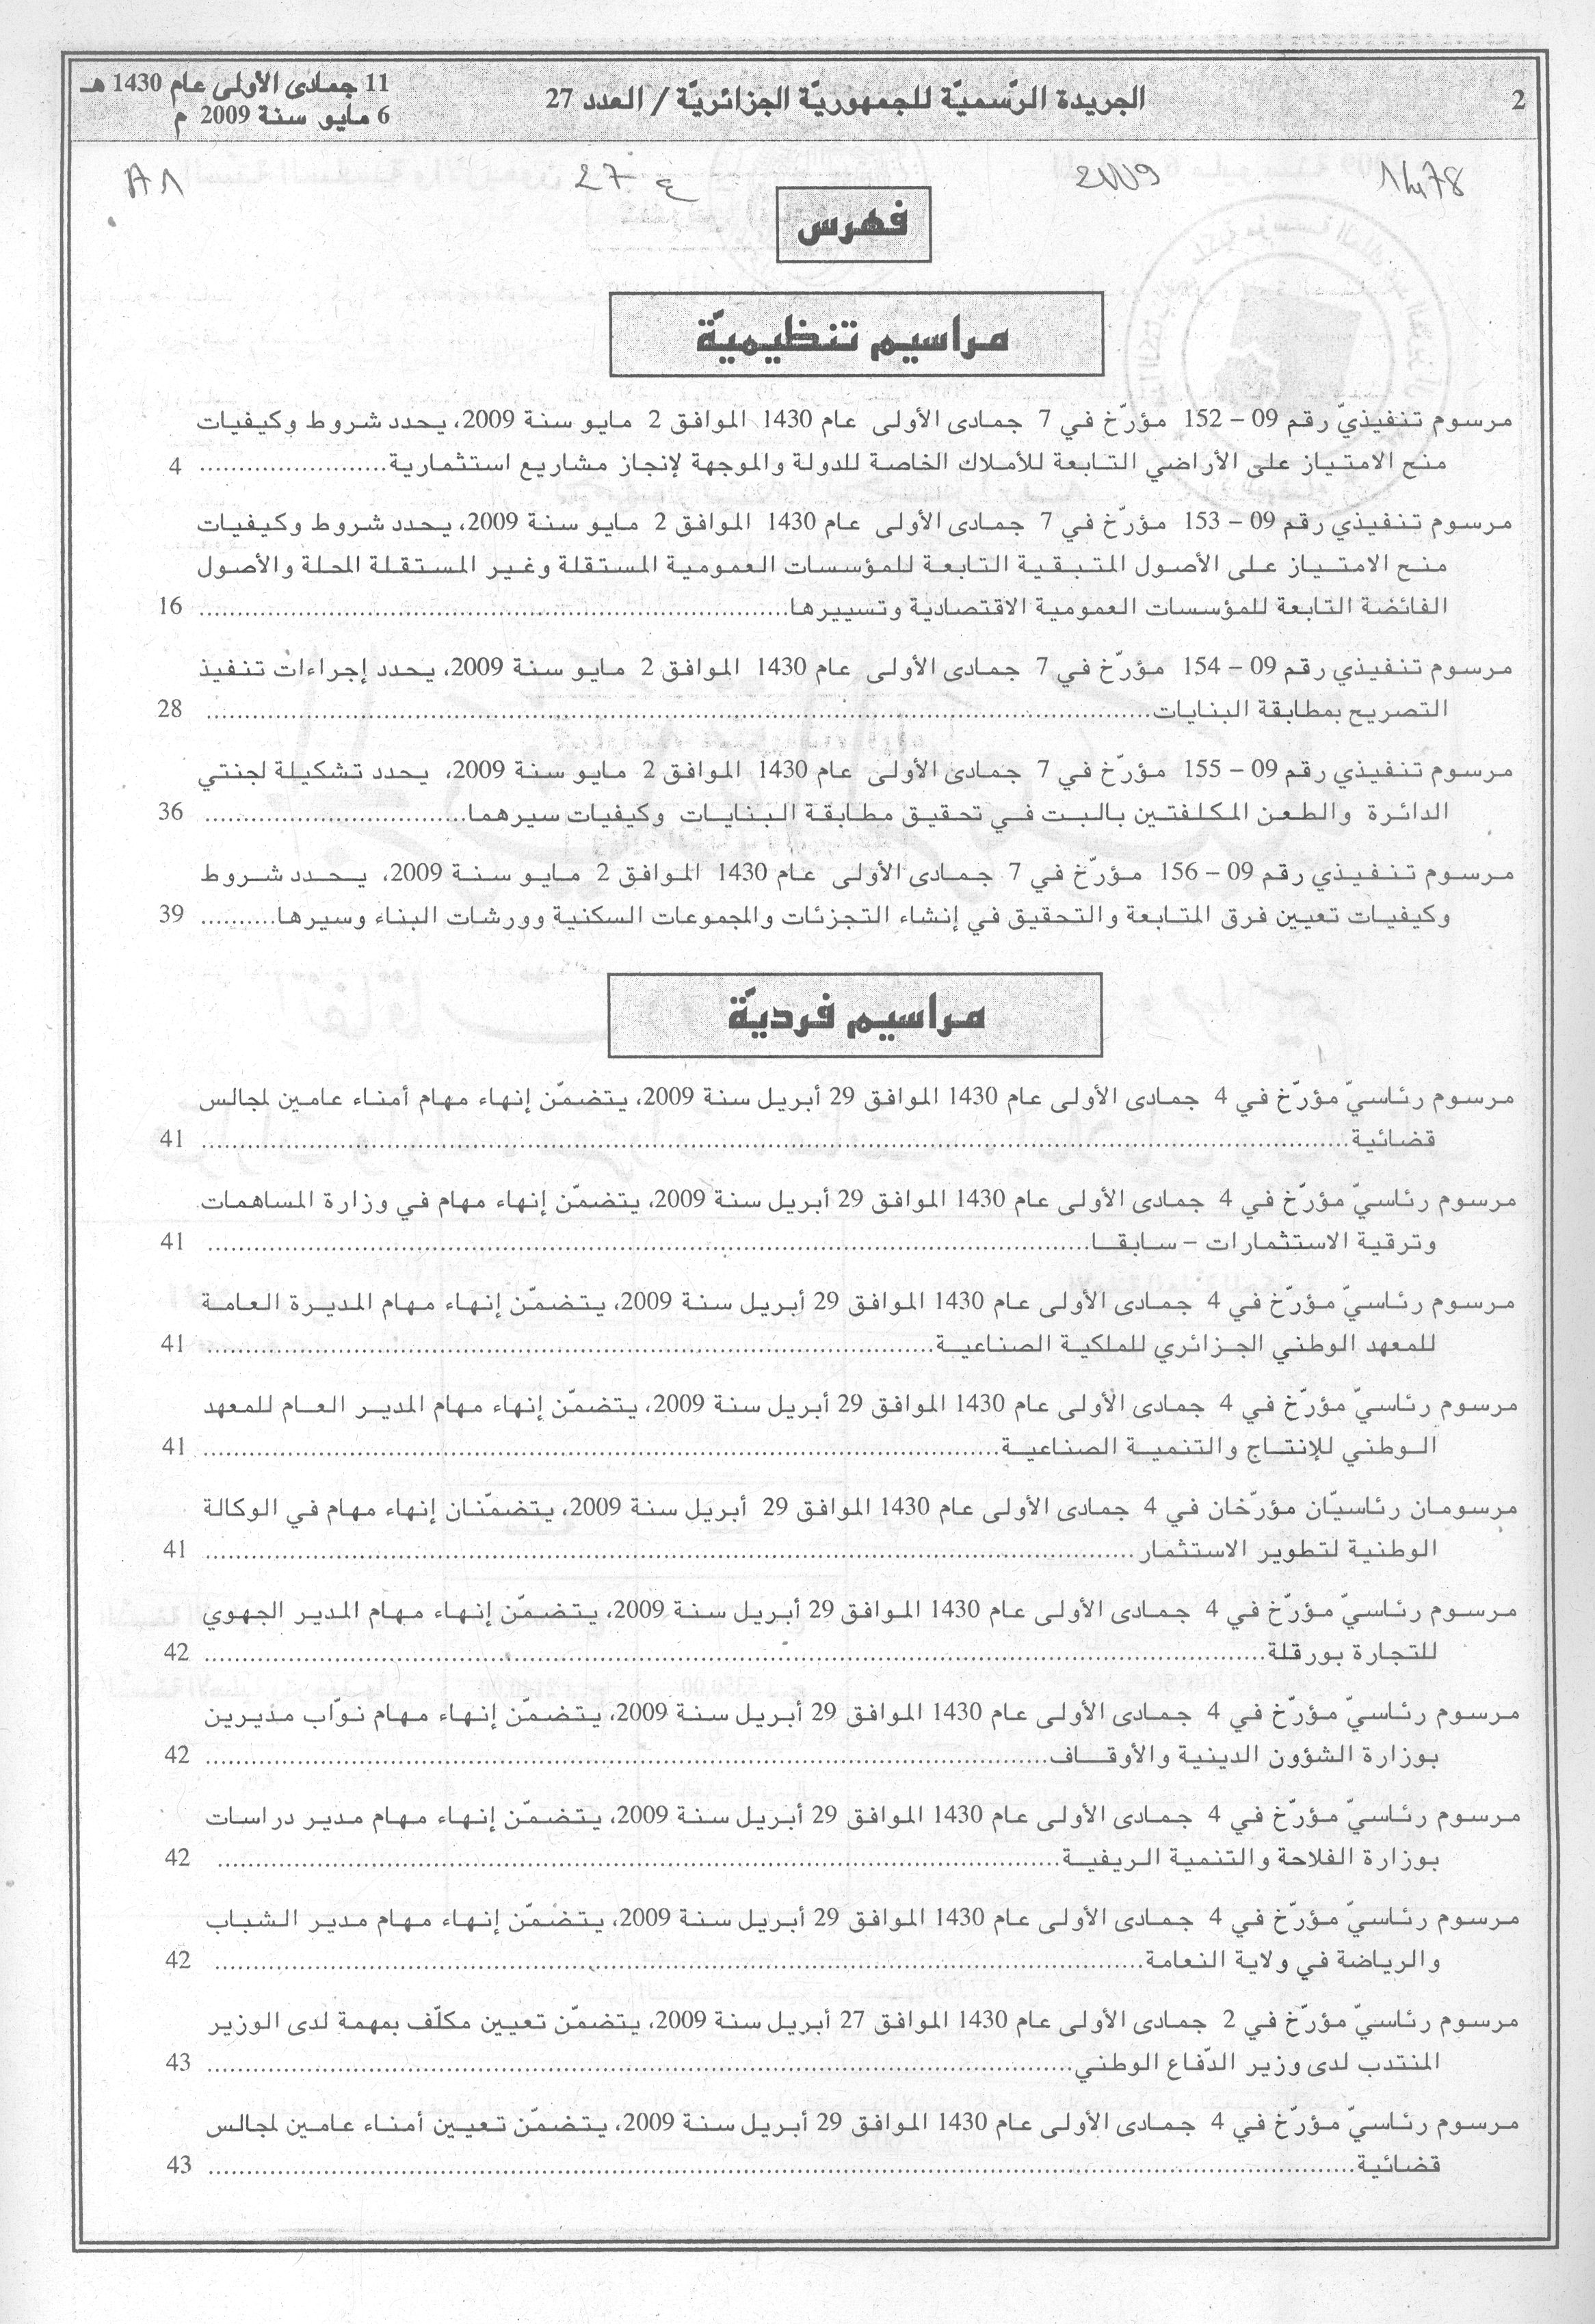 2
الجريدة الرّسميّة للجمهوريّة الجزائريّة / العدد 27
11 جمادى الأولى عام 1430 هـ
6 مايو سنة 2009 م
2009
27 ع
فهرس
مراسيم تنظيميّة
مرسوم تنفيذيّ رقم 09 – 152 مؤرّخ في 7 جمادى الأولى عام 1430 الموافق 2 مايو سنة 2009، يحدد شروط وكيفيات
منح الامتياز على الأراضي التابعة للأملاك الخاصة للدولة والموجهة لإنجاز مشاريع استثمارية........................ 4
مرسوم تنفيذي رقم 09 – 153 مؤرّخ في 7 جمادى الأولى عام 1430 الموافق 2 مايو سنة 2009، يحدد شروط وكيفيات
منح الامتياز على الأصول المتبقية التابعة للمؤسسات العمومية المستقلة وغير المستقلة المحلة والأصول
الفائضة التابعة للمؤسسات العمومية الاقتصادية وتسييرها........................ 16
مرسوم تنفيذي رقم 09 – 154 مؤرّخ في 7 جمادى الأولى عام 1430 الموافق 2 مايو سنة 2009، يحدد إجراءات تنفيذ
التصريح بمطابقة البنايات........................ 28
مرسوم تنفيذي رقم 09 – 155 مؤرّخ في 7 جمادى الأولى عام 1430 الموافق 2 مايو سنة 2009، يحدد تشكيلة لجنتي
الدائرة والطعن المكلفتين بالبت في تحقيق مطابقة البنايات وكيفيات سيرهما........................ 36
مرسوم تنفيذي رقم 09 – 156 مؤرّخ في 7 جمادى الأولى عام 1430 الموافق 2 مايو سنة 2009، يحدد شروط
وكيفيات تعيين فرق المتابعة والتحقيق في إنشاء التجزئات والمجموعات السكنية وورشات البناء وسيرها.......... 39
مراسيم فرديّة
مرسوم رئاسيّ مؤرّخ في 4 جمادى الأولى عام 1430 الموافق 29 أبريل سنة 2009، يتضمّن إنهاء مهام أمناء عامين لمجالس
قضائية........................ 41
مرسوم رئاسيّ مؤرّخ في 4 جمادى الأولى عام 1430 الموافق 29 أبريل سنة 2009، يتضمّن إنهاء مهام في وزارة المساهمات
وترقية الاستثمارات – سابقا........................ 41
مرسوم رئاسيّ مؤرّخ في 4 جمادى الأولى عام 1430 الموافق 29 أبريل سنة 2009، يتضمّن إنهاء مهام المديرة العامة
للمعهد الوطني الجزائري للملكية الصناعية........................ 41
مرسوم رئاسيّ مؤرّخ في 4 جمادى الأولى عام 1430 الموافق 29 أبريل سنة 2009، يتضمّن إنهاء مهام المدير العام للمعهد
الوطني للإنتاج والتنمية الصناعية........................ 41
مرسومان رئاسيّان مؤرّخان في 4 جمادى الأولى عام 1430 الموافق 29 أبريل سنة 2009، يتضمّنان إنهاء مهام في الوكالة
الوطنية لتطوير الاستثمار........................ 41
مرسوم رئاسيّ مؤرّخ في 4 جمادى الأولى عام 1430 الموافق 29 أبريل سنة 2009، يتضمّن إنهاء مهام المدير الجهوي
للتجارة بورقلة........................ 42
مرسوم رئاسيّ مؤرّخ في 4 جمادى الأولى عام 1430 الموافق 29 أبريل سنة 2009، يتضمّن إنهاء مهام نوّاب مديرين
بوزارة الشؤون الدينية والأوقاف........................ 42
مرسوم رئاسيّ مؤرّخ في 4 جمادى الأولى عام 1430 الموافق 29 أبريل سنة 2009، يتضمّن إنهاء مهام مدير دراسات
بوزارة الفلاحة والتنمية الريفية........................ 42
مرسوم رئاسيّ مؤرّخ في 4 جمادى الأولى عام 1430 الموافق 29 أبريل سنة 2009، يتضمّن إنهاء مهام مدير الشباب
والرياضة في ولاية النعامة........................ 42
مرسوم رئاسيّ مؤرّخ في 2 جمادى الأولى عام 1430 الموافق 27 أبريل سنة 2009، يتضمّن تعيين مكلّف بمهمة لدى الوزير
المنتدب لدى وزير الدّفاع الوطني........................ 43
مرسوم رئاسيّ مؤرّخ في 4 جمادى الأولى عام 1430 الموافق 29 أبريل سنة 2009، يتضمّن تعيين أمناء عامين لمجالس
قضائية........................ 43